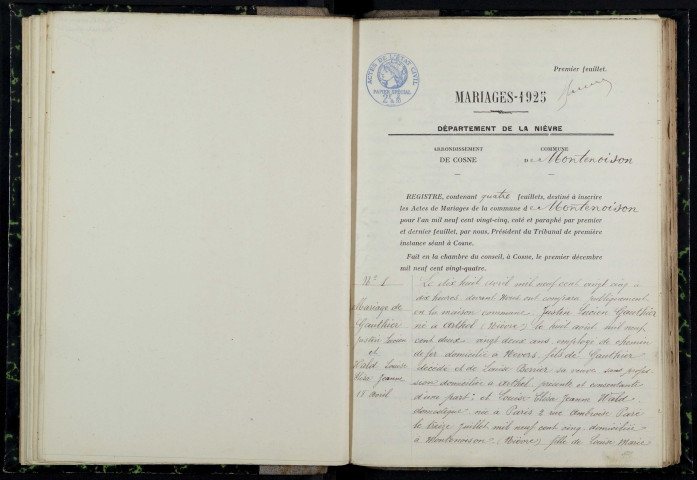 Premier feuillet.
ACTES DE L'ÉTAT CIVIL
PAPIER SPÉCIAL
MARIAGES-1925
DÉPARTEMENT DE LA NIÈVRE
ARRONDISSEMENT
DE COSNE
COMMUNE
de Montenoison
REGISTRE, contenant quatre feuillets, destiné à inscrire
les Actes de Mariages de la commune de Montenoison
pour l'an mil neuf cent vingt-cinq, coté et paraphé par premier
et dernier feuillet, par nous, Président du Tribunal de première
instance séant à Cosne.
Fait en la chambre du conseil, à Cosne, le premier décembre
mil neuf cent vingt-quatre.
N° 1
Mariage de
Gaulthier
Justin Lucien
et
Wald Louise
Elisa Jeanne
18 avril
Le dix huit avril mil neuf cent vingt cinq à
dix heures devant Nous ont comparu publiquement
en la maison commune Justin Lucien Gaulthier
né à Arthel (Nièvre) le huit août mil neuf
cent deux, vingt deux ans employé de chemin
de fer domicilié à Nevers, fils de Gaulthier
décédé et de Louise sa veuve sans profes
sion domiciliée à Arthel, présente et consentante
d'une part; et Louise Elisa Jeanne Wald
domestique née à Paris 2 rue Ambroise Paré
le treize juillet mil neuf cent cinq domiciliée
à Montenoison (Nièvre), fille de Louise Marie